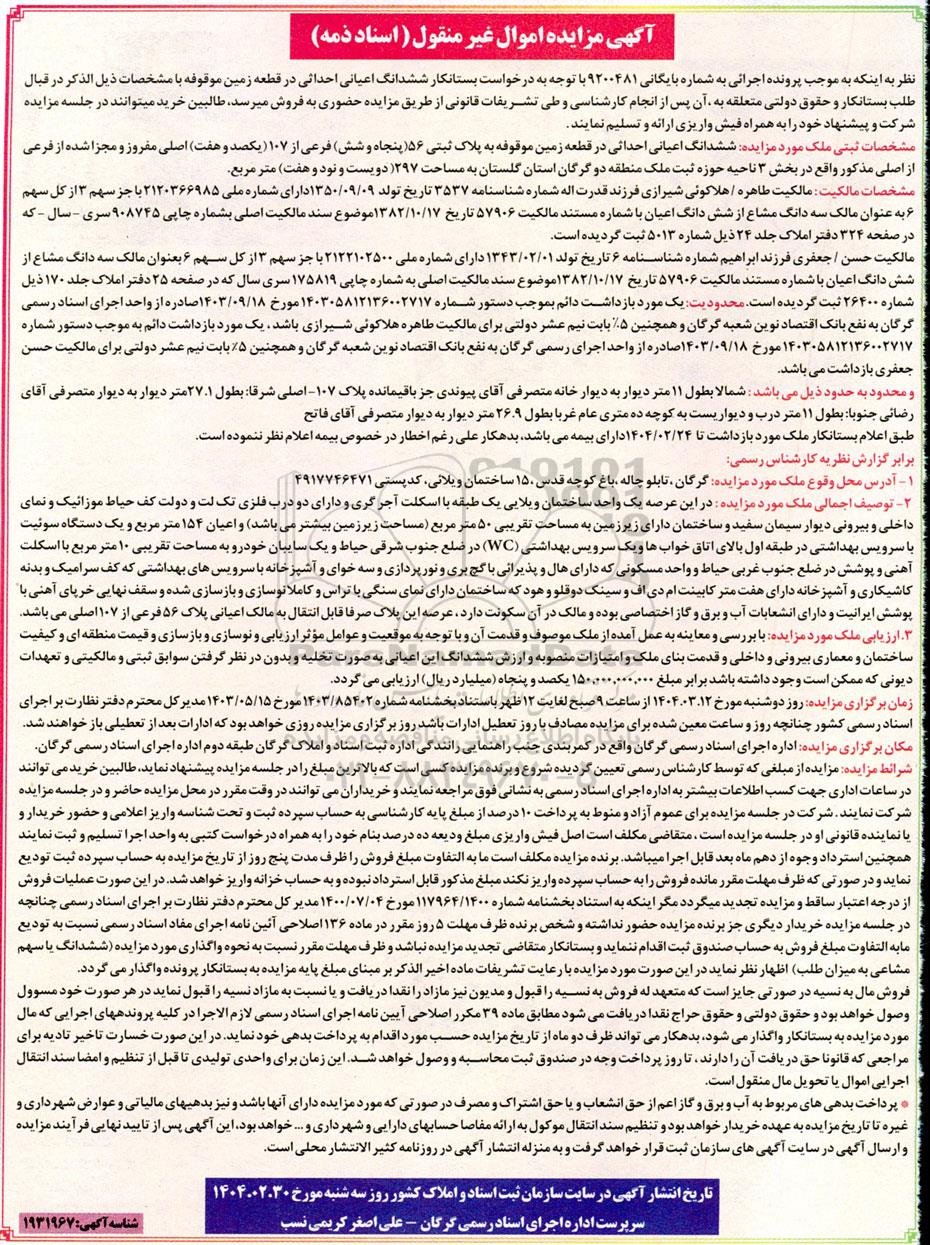 آگهی مزایده اموال غیر منقول (اسناد ذمه)
نظر به اینکه به موجب پرونده اجرائی به شماره بایگانی ۹۲۰۰۴۸۱ با توجه به درخواست بستانکار ششدانگ اعیانی احداثی در قطعه زمین موقوفه با مشخصات ذیل الذکر در قبال
طلب بستانکار و حقوق دولتی متعلقه به ،آن پس از انجام کارشناسی و طی تشریفات قانونی از طریق مزایده حضوری به فروش میرسد، طالبین خرید میتوانند در جلسه مزایده
شرکت و پیشنهاد خود را به همراه فیش واریزی ارائه و تسلیم نمایند .
مشخصات ثبتی ملک مورد مزایده: ششدانگ اعیانی احداثی در قطعه زمین موقوفه به پلاک ثبتی ۵۶(پنجاه و شش) فرعی از ۱۰۷ (یکصد و هفت) اصلی مفروز و مجزا شده از فرعی
از اصلی مذکور واقع در بخش ۳ ناحیه حوزه ثبت ملک منطقه دو گرگان استان گلستان به مساحت ۲۹۷ (دویست و نود و هفت) متر مربع.
مشخصات مالکیت: مالکیت طاهره / هلاکوئی شیرازی فرزند قدرت اله شماره شناسنامه ۳۵۳۷ تاریخ تولد ۱۳۵۰/۰۹/۰۹ دارای شماره ملی ۲۱۲۰۳۶۶۹۸۵ با جز سهم ۳ از کل سهم
۶ به عنوان مالک سه دانگ مشاع از شش دانگ اعیان با شماره مستند مالکیت ۵۷۹۰۶ تاریخ ۱۳۸۲/۱۰/۱۷موضوع سند مالکیت اصلی بشماره چاپی ۹۰۸۷۴۵سری - سال - که
در صفحه ۳۲۴ دفتر املاک جلد ۲۴ ذیل شماره ۵۰۱۳ ثبت گردیده است.
مالکیت حسن / جعفری فرزند ابراهیم شماره شناسنامه ۶ تاریخ تولد ۱۳۴۳/۰۲/۰۱ دارای شماره ملی ۲۱۲۲۱۰۲۵۰۰ با جز سهم ۳ از کل سهم ۶ بعنوان مالک سه دانگ مشاع از
شش دانگ اعیان با شماره مستند مالکیت ۵۷۹۰۶ تاریخ ۱۳۸۲/۱۰/۱۷موضوع سند مالکیت اصلی به شماره چاپی ۱۷۵۸۱۹ سری سال که در صفحه ۲۵ دفتر املاک جلد ۱۷۰ ذیل
شماره ۲۶۴۰۰ ثبت گردیده است. محدودیت: یک مورد بازداشت دائم بموجب دستور شماره ۱۴۰۳۰۵۸۱۲۱۳۶۰۰۲۷۱۷ مورخ ۱۴۰۳/۰۹/۱۸صادره از واحد اجرای اسناد رسمی
گرگان به نفع بانک اقتصاد نوین شعبه گرگان و همچنین ۵٪ بابت نیم عشر دولتی برای مالکیت طاهره هلاکوئی شیرازی باشد ، یک مورد بازداشت دائم به موجب دستور شماره
۱۴۰۳۰۵۸۱۲۱۳۶۰۰۲۷۱۷مورخ ۱۴۰۳/۰۹/۱۸صادره از واحد اجرای رسمی گرگان به نفع بانک اقتصاد نوین شعبه گرگان و همچنین ۵٪ بابت نیم عشر دولتی برای مالکیت حسن
جعفری بازداشت می باشد.
و محدود به حدود ذیل می باشد : شمالا بطول ۱۱ متر دیوار به دیوار خانه متصرفی آقای پیوندی جز باقیمانده پلاک ۱۰۷-اصلی شرقا: بطول ۲۷.۱متر دیوار به دیوار متصرفی آقای
رضائی جنوبا: بطول ۱۱ متر درب و دیواریست به کوچه ده متری عام غربا بطول ۲۶.۹ متر دیوار به دیوار متصرفی آقای فاتح
طبق اعلام بستانکار ملک مورد بازداشت تا ۱۴۰۴/۰۲/۲۴دارای بیمه می باشد، بدهکار علی رغم اخطار در خصوص بیمه اعلام نظر ننموده است.
برابر گزارش نظریه کارشناس رسمی:
۱- آدرس محل وقوع ملک مورد مزایده: گرگان ، تابلو چاله ،باغ کوچه قدس ۱۵، ساختمان ویلائی، کدپستی ۴۹۱۷۷۴۶۴۷۱
۲- توصیف اجمالی ملک مورد مزایده : در این عرصه یک واحد ساختمان ویلایی یک طبقه با اسکلت آجر گری و دارای دو درب فلزی تک لت و دولت کف حیاط موزائیک و نمای
داخلی و بیرونی دیوار سیمان سفید و ساختمان دارای زیرزمین به مساحت تقریبی ۵۰ متر مربع (مساحت زیرزمین بیشتر می باشد) و اعیان ۱۵۴ متر مربع و یک دستگاه سوئیت
با سرویس بهداشتی در طبقه اول بالای اتاق خواب ها و یک سرویس بهداشتی (WC) در ضلع جنوب شرقی حیاط و یک سایبان خودرو به مساحت تقریبی ۱۰ متر مربع با اسکلت
آهنی و پوشش در ضلع جنوب غربی حیاط و واحد مسکونی که دارای هال و پذیرائی با گچ بری و نورپردازی و سه خوای و آشپزخانه با سرویس های بهداشتی که کف سرامیک و بدنه
کاشیکاری و آشپزخانه دارای هفت متر کابینت ام دی اف و سینک دوقلو و هود که ساختمان دارای نمای سنگی با تراس و کاملا نوسازی و بازسازی شده و سقف نهایی خرپای آهنی با
پوشش ایرانیت و دارای انشعابات آب و برق و گاز اختصاصی بوده و مالک در آن سکونت دارد ، عرصه این پلاک صرفا قابل انتقال به مالک اعیانی پلاک ۵۶ فرعی از ۱۰۷اصلی می باشد.
۳. ارزیابی ملک مورد مزایده: با بررسی و معاینه به عمل آمده از ملک موصوف و قدمت آن و با توجه به موقعیت و عوامل مؤثر ارزیابی و نوسازی و بازسازی و قیمت منطقه ای و کیفیت
ساختمان و معماری بیرونی و داخلی و قدمت بنای ملک و امتیازات منصوبه و ارزش ششدانگ این اعیانی به صورت تخلیه و بدون در نظر گرفتن سوابق ثبتی و مالکیتی و تعهدات
دیونی که ممکن است وجود داشته باشد برابر مبلغ ۱۵۰,۰۰۰,۰۰۰,۰۰۰ یکصد و پنجاه (میلیارد ریال) ارزیابی می گردد.
زمان برگزاری مزایده: روز دوشنبه مورخ ۱۴۰۴.۰۳.۱۲ از ساعت ۹ صبح لغایت ۱۲ ظهر باستناد بخشنامه شماره ۱۴۰۳/۸۵۴۰۲مورخ ۱۴۰۳/۰۵/۱۵ مدیر کل محترم دفتر نظارت بر اجرای
اسناد رسمی کشور چنانچه روز و ساعت معین شده برای مزایده مصادف با روز تعطیل ادارات باشد روز برگزاری مزایده روزی خواهد بود که ادارات بعد از تعطیلی باز خواهند شد.
مکان برگزاری مزایده: اداره اجرای اسناد رسمی گرگان واقع در کمربندی جنب راهنمایی رانندگی اداره ثبت اسناد و املاک گرگان طبقه دوم اداره اجرای اسناد رسمی گرگان.
شرائط مزایده: مزایده از مبلغی که توسط کارشناس رسمی تعیین گردیده شروع و برنده مزایده کسی است که بالاترین مبلغ را در جلسه مزایده پیشنهاد نماید، طالبین خرید می توانند
در ساعات اداری جهت کسب اطلاعات بیشتر به اداره اجرای اسناد رسمی به نشانی فوق مراجعه نمایند و خریداران می توانند در وقت مقرر در محل مزایده حاضر و در جلسه مزایده
شرکت نمایند . شرکت در جلسه مزایده برای عموم آزاد و منوط به پرداخت ۱۰ درصد از مبلغ پایه کارشناسی به حساب سپرده ثبت و تحت شناسه واریز اعلامی و حضور خریدار و
یا نماینده قانونی او در جلسه مزایده است ، متقاضی مکلف است اصل فیش واریزی مبلغ ودیعه ده درصد بنام خود را به همراه درخواست کتبی به واحد اجرا تسلیم و ثبت نمایند
همچنین استرداد وجوه از دهم ماه بعد قابل اجرا میباشد. برنده مزایده مکلف است ما به التفاوت مبلغ فروش را ظرف مدت پنج روز از تاریخ مزایده به حساب سپرده ثبت تودیع
نماید و در صورتی که ظرف مهلت مقرر مانده فروش را به حساب سپرده واریز نکند مبلغ مذکور قابل استرداد نبوده و به حساب خزانه واریز خواهد شد. در این صورت عملیات فروش
از درجه اعتبار ساقط و مزایده تجدید میگردد مگر اینکه به استناد بخشنامه شماره ۱۱۷۹۶۴/۱۴۰۰مورخ ۱۴۰۰/۰۷/۰۴ مدیر کل محترم دفتر نظارت بر اجرای اسناد رسمی چنانچه
در جلسه مزایده خریدار دیگری جز برنده مزایده حضور نداشته و شخص برنده ظرف مهلت ۵ روز مقرر در ماده ۱۳۶اصلاحی آئین نامه اجرای مفاد اسناد رسمی نسبت به تودیع
مابه التفاوت مبلغ فروش به حساب صندوق ثبت اقدام ننماید و بستانکار متقاضی تجدید مزایده نباشد و ظرف مهلت مقرر نسبت به نحوه واگذاری مورد مزایده (ششدانگ یا سهم
مشاعی به میزان طلب) اظهار نظر نماید در این صورت مورد مزایده با رعایت تشریفات ماده اخیر الذکر بر مبنای مبلغ پایه مزایده به بستانکار پرونده واگذار می گردد.
فروش مال به نسیه در صورتی جایز است که متعهد له فروش به نسیه را قبول و مدیون نیز مازاد را نقدا دریافت و یا نسبت به مازاد نسیه را قبول نماید در هر صورت خود مسوول
وصول خواهد بود و حقوق دولتی و حقوق حراج نقدا دریافت می شود مطابق ماده ۳۹ مکرر اصلاحی آیین نامه اجرای اسناد رسمی لازم الاجرا در کلیه پروندههای اجرایی که مال
مورد مزایده به بستانکار واگذار می شود، بدهکار می تواند ظرف دو ماه از تاریخ مزایده حسب مورد اقدام به پرداخت بدهی خود نماید. در این صورت خسارت تاخیر تادیه برای
مراجعی که قانونا حق دریافت آن را دارند ، تا روز پرداخت وجه در صندوق ثبت محاسبه و وصول خواهد شد. این زمان برای واحدی تولیدی تا قبل از تنظیم و امضا سند انتقال
اجرایی اموال یا تحویل مال منقول است.
* پرداخت بدهی های مربوط به آب و برق و گاز اعم از حق انشعاب و یا حق اشتراک و مصرف در صورتی که مورد مزایده دارای آنها باشد و نیز بدهیهای مالیاتی و عوارض شهرداری و
غیره تا تاریخ مزایده به عهده خریدار خواهد بود و تنظیم سند انتقال موکول به ارائه مفاصا حسابهای دارایی و شهرداری و ... خواهد بود، این آگهی پس از تایید نهایی فرآیند مزایده
و ارسال آگهی در سایت آگهی های سازمان ثبت قرار خواهد گرفت و به منزله انتشار آگهی در روزنامه کثیر الانتشار محلی است.
تاریخ انتشار آگهی در سایت سازمان ثبت اسناد و املاک کشور روز سه شنبه مورخ ۱۴۰۴.۰۲.۳۰
سرپرست اداره اجرای اسناد رسمی گرگان - علی اصغر کریمی نسب
شناسه آگهی: ۱۹۳۱۹۶۷
ParsNamadData
پایگاه اطلاع رسانی مناقصه و مزایده
۰۲۱-۸۸۳۴۹۶۷۰-۵